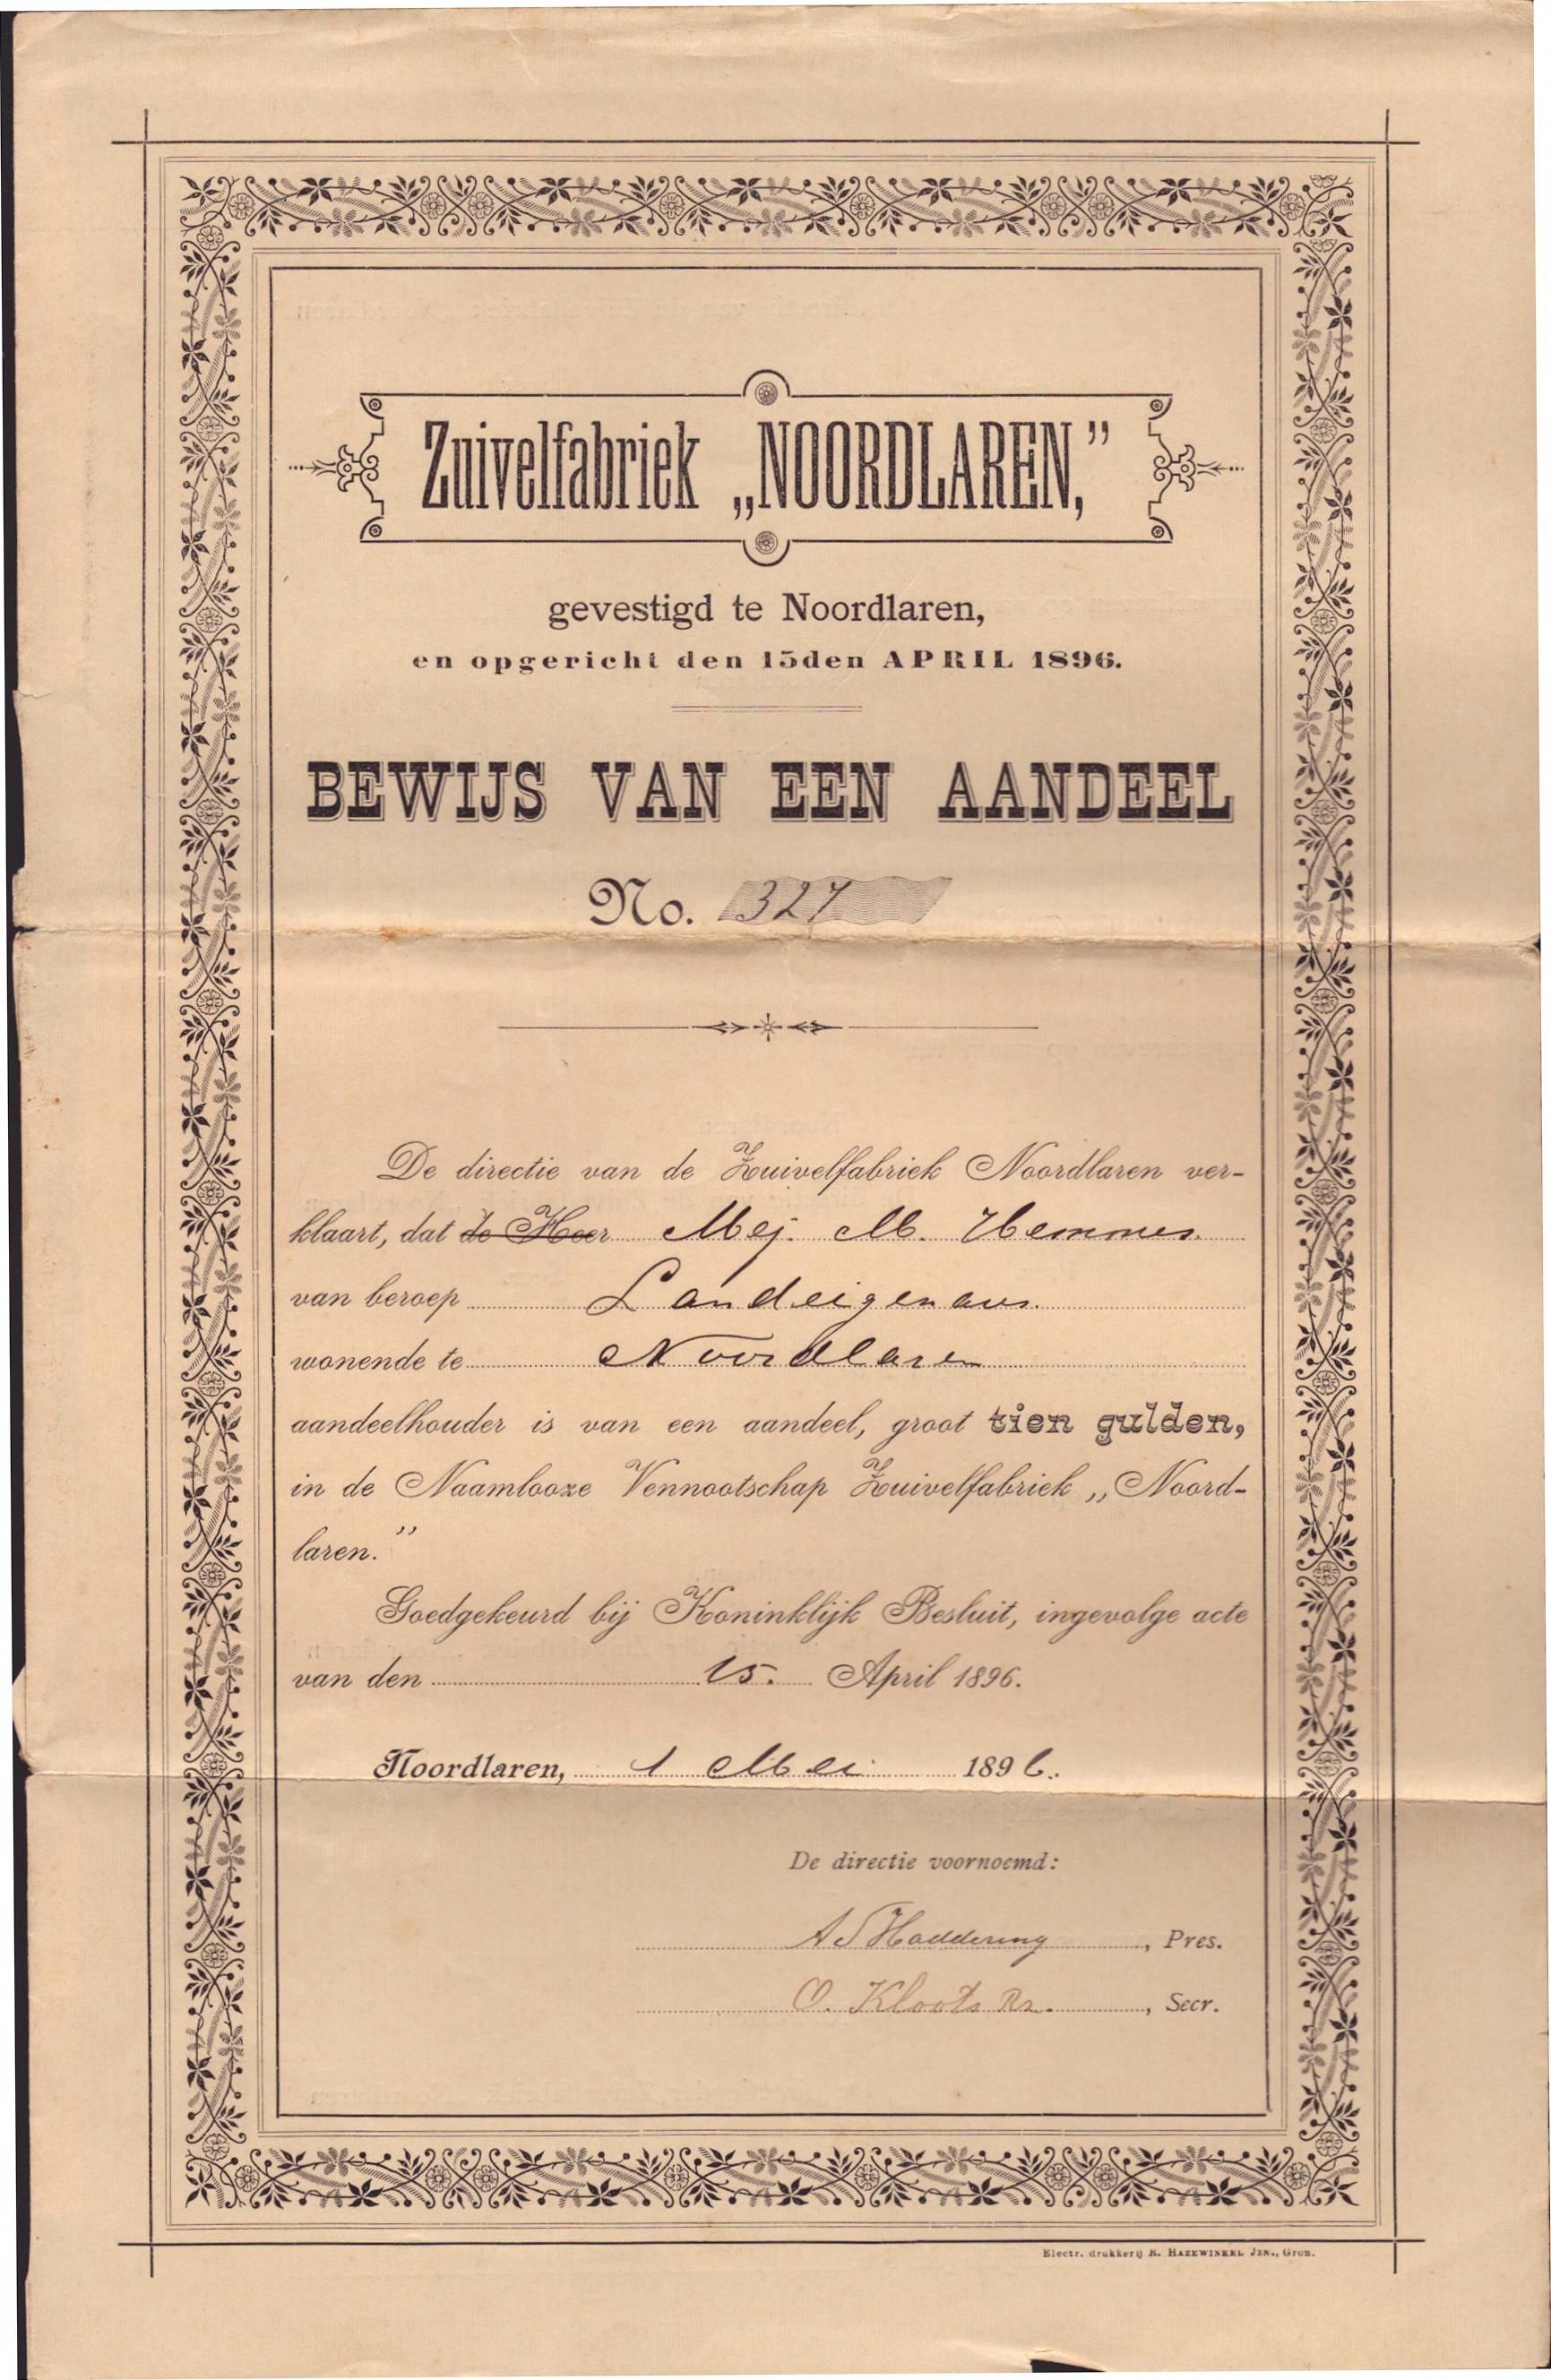 Zuivelfabriek „NOORDLAREN,”
gevestigd te Noordlaren,
en opgericht den 15den APRIL 1896.
BEWIJS VAN EEN AANDEEL
No. 327
De directie van de Zuivelfabriek Noordlaren ver-
klaart, dat de Heer Mej. M. Hemmes.
van beroep Landeigenares.
wonende te Noordlaren
aandeelhouder is van een aandeel, groot tien gulden,
in de Naamlooze Vennootschap Zuivelfabriek „Noord-
laren.”
Goedgekeurd bij Koninklijk Besluit, ingevolge acte
van den 15. April 1896.
Noordlaren, 1 Mei 1896.
De directie voornoemd:
A J Hoddering, Pres.
O. Kloots Rz., Secr.
Electr. drukkerij R. HAZEWINKEL JZN., Gron.